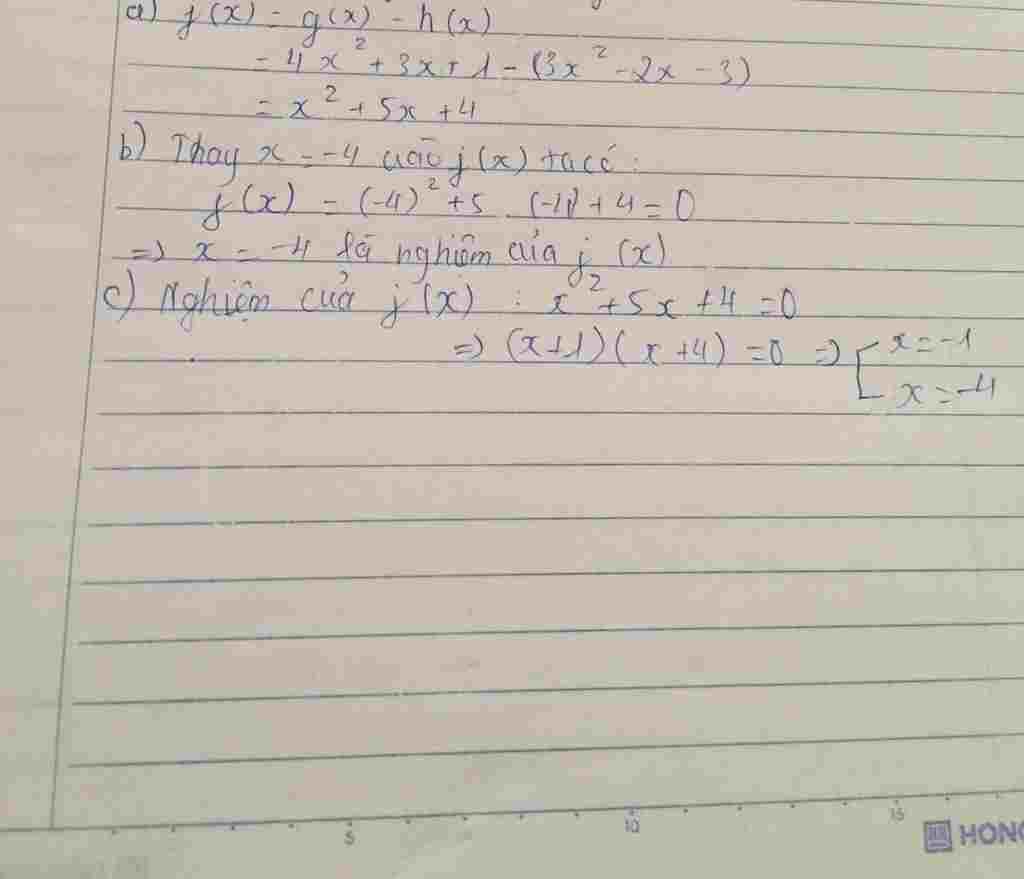 a) f(x) = g(x) - h(x)
= 4x² + 3x + 1 - (3x² - 2x - 3)
= x² + 5x + 4
b) Thay x = -4 vào f(x) ta có:
f(x) = (-4)² + 5 (-4) + 4 = 0
=> x = -4 là nghiệm của f(x)
c) Nghiệm của f(x) : x² + 5x + 4 = 0
=> (x+1)(x+4) = 0 => [ x = -1
x = -4
5 10 15
HONG